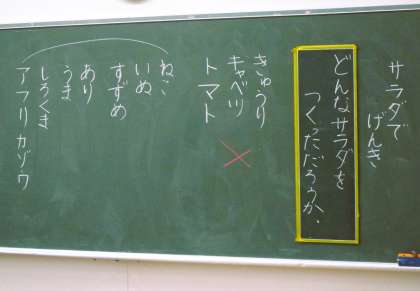 サラダで
げんき
どんなサラダを
つくっただろうか。
きゅうり
キャベツ
トマト
ねこ
いぬ
すずめ
あり
うま
しろくま
アフリカゾウ